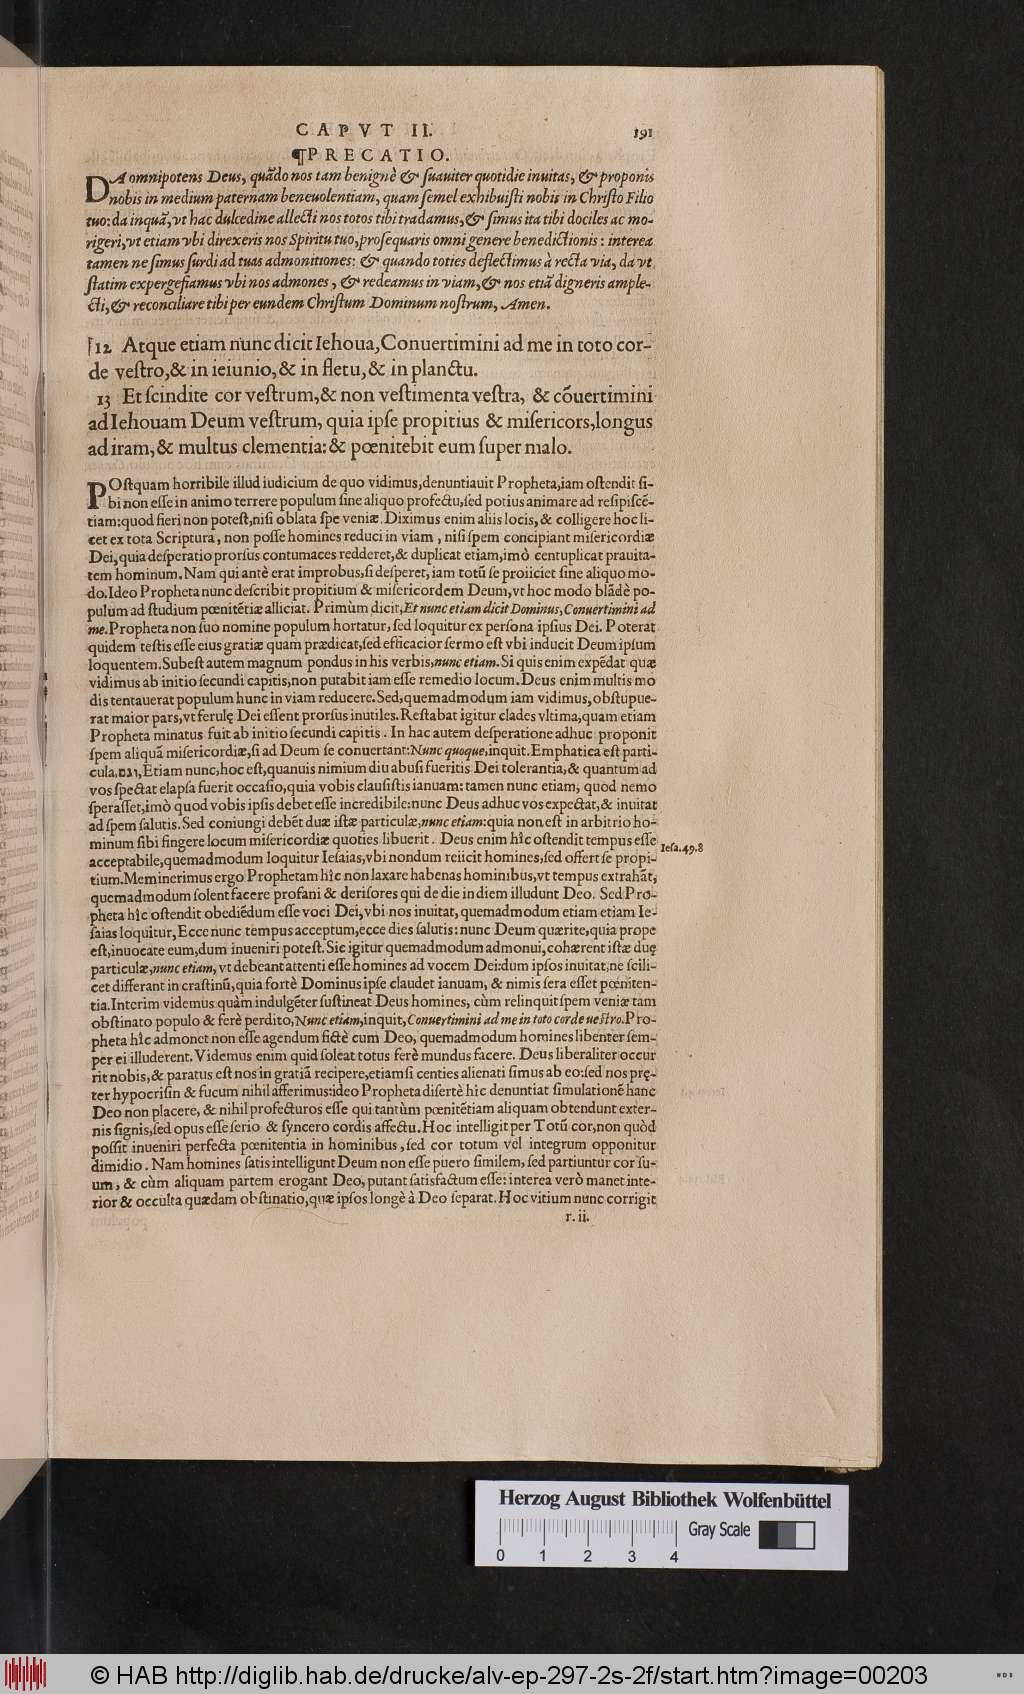 CAPVT II. 191
¶PRECATIO.
DA omnipotens Deus, quãdo nos tam benignè & ſuauiter quotidie inuitas, & proponis
nobis in medium paternam beneuolentiam, quam ſemel exhibuiſti nobis in Chriſto Filio
tuo: da inquã, vt hac dulcedine allecti nos totos tibi tradamus, & ſimus ita tibi dociles ac mo-
rigeri, vt etiam vbi direxeris nos Spiritu tuo, proſequaris omni genere benedictionis: interea
tamen ne ſimus ſurdi ad tuas admonitiones: & quando toties deflectimus à recta via, da vt
ſtatim expergefiamus vbi nos admones, & redeamus in viam, & nos etiã digneris ample-
cti, & reconciliare tibi per eundem Chriſtum Dominum noſtrum, Amen.
12 Atque etiam nunc dicit Iehoua, Conuertimini ad me in toto cor-
de veſtro, & in ieiunio, & in fletu, & in planctu.
13 Et ſcindite cor veſtrum, & non veſtimenta veſtra, & cõuertimini
ad Iehouam Deum veſtrum, quia ipſe propitius & miſericors, longus
ad iram, & multus clementia: & pœnitebit eum ſuper malo.
POſtquam horribile illud iudicium de quo vidimus, denuntiauit Propheta, iam oſtendit ſi-
bi non eſſe in animo terrere populum ſine aliquo profectu, ſed potius animare ad reſipiſcẽ-
tiam: quod fieri non poteſt, niſi oblata ſpe veniæ. Diximus enim aliis locis, & colligere hoc li-
cet ex tota Scriptura, non poſſe homines reduci in viam, niſi ſpem concipiant miſericordiæ
Dei, quia deſperatio prorſus contumaces redderet, & duplicat etiam, imò centuplicat prauita-
tem hominum. Nam qui antè erat improbus, ſi deſperet, iam totũ ſe proiiciet ſine aliquo mo-
do. Ideo Propheta nunc deſcribit propitium & miſericordem Deum, vt hoc modo blãdè po-
pulum ad ſtudium pœnitẽtiæ alliciat. Primùm dicit, Et nunc etiam dicit Dominus, Conuertimini ad
me. Propheta non ſuo nomine populum hortatur, ſed loquitur ex perſona ipſius Dei. Poterat
quidem teſtis eſſe eius gratiæ quam prædicat, ſed efficacior ſermo eſt vbi inducit Deum ipſum
loquentem. Subeſt autem magnum pondus in his verbis, nunc etiam. Si quis enim expẽdat quæ
vidimus ab initio ſecundi capitis, non putabit iam eſſe remedio locum. Deus enim multis mo
dis tentauerat populum hunc in viam reducere. Sed, quemadmodum iam vidimus, obſtupue-
rat maior pars, vt ferulę Dei eſſent prorſus inutiles. Reſtabat igitur clades vltima, quam etiam
Propheta minatus fuit ab initio ſecundi capitis. In hac autem deſperatione adhuc proponit
ſpem aliquã miſericordiæ, ſi ad Deum ſe conuertant: Nunc quoque, inquit. Emphatica eſt parti-
cula, וגם, Etiam nunc, hoc eſt, quanuis nimium diu abuſi fueritis Dei tolerantia, & quantum ad
vos ſpectat elapſa fuerit occaſio, quia vobis clauſiſtis ianuam: tamen nunc etiam, quod nemo
ſperaſſet, imò quod vobis ipſis debet eſſe incredibile: nunc Deus adhuc vos expectat, & inuitat
ad ſpem ſalutis. Sed coniungi debẽt duæ iſtæ particulæ, nunc etiam: quia non eſt in arbitrio ho-
minum ſibi fingere locum miſericordiæ quoties libuerit. Deus enim hîc oſtendit tempus eſſe
acceptabile, quemadmodum loquitur Ieſaias, vbi nondum reiicit homines, ſed offert ſe propi-
Ieſa. 49. 8
tium. Meminerimus ergo Prophetam hîc non laxare habenas hominibus, vt tempus extrahãt,
quemadmodum ſolent facere profani & deriſores qui de die in diem illudunt Deo. Sed Pro-
pheta hîc oſtendit obediẽdum eſſe voci Dei, vbi nos inuitat, quemadmodum etiam etiam Ie-
ſaias loquitur, Ecce nunc tempus acceptum, ecce dies ſalutis: nunc Deum quærite, quia prope
eſt, inuocate eum, dum inueniri poteſt. Sic igitur quemadmodum admonui, cohærent iſtæ duę
particulæ, nunc etiam, vt debeant attenti eſſe homines ad vocem Dei: dum ipſos inuitat, ne ſcili-
cet differant in craſtinũ, quia fortè Dominus ipſe claudet ianuam, & nimis ſera eſſet pœniten-
tia. Interim videmus quàm indulgẽter ſuſtineat Deus homines, cùm relinquit ſpem veniæ tam
obſtinato populo & ferè perdito, Nunc etiam, inquit, Conuertimini ad me in toto corde veſtro. Pro-
pheta hîc admonet non eſſe agendum fictè cum Deo, quemadmodum homines libenter ſem-
per ei illuderent. Videmus enim quid ſoleat totus ferè mundus facere. Deus liberaliter occur
rit nobis, & paratus eſt nos in gratiã recipere, etiamſi centies alienati ſimus ab eo: ſed nos prę-
ter hypocriſin & fucum nihil afferimus: ideo Propheta diſertè hîc denuntiat ſimulationẽ hanc
Deo non placere, & nihil profecturos eſſe qui tantùm pœnitẽtiam aliquam obtendunt exter-
nis ſignis, ſed opus eſſe ſerio & ſyncero cordis affectu. Hoc intelligit per Totũ cor, non quòd
poſſit inueniri perfecta pœnitentia in hominibus, ſed cor totum vel integrum opponitur
dimidio. Nam homines ſatis intelligunt Deum non eſſe puero ſimilem, ſed partiuntur cor ſu-
um, & cùm aliquam partem erogant Deo, putant ſatisfactum eſſe: interea verò manet inte-
rior & occulta quædam obſtinatio, quæ ipſos longè à Deo ſeparat. Hoc vitium nunc corrigit
r. ii.
Herzog August Bibliothek Wolfenbüttel
Gray Scale
0 1 2 3 4
© HAB http://diglib.hab.de/drucke/alv-ep-297-2s-2f/start.htm?image=00203